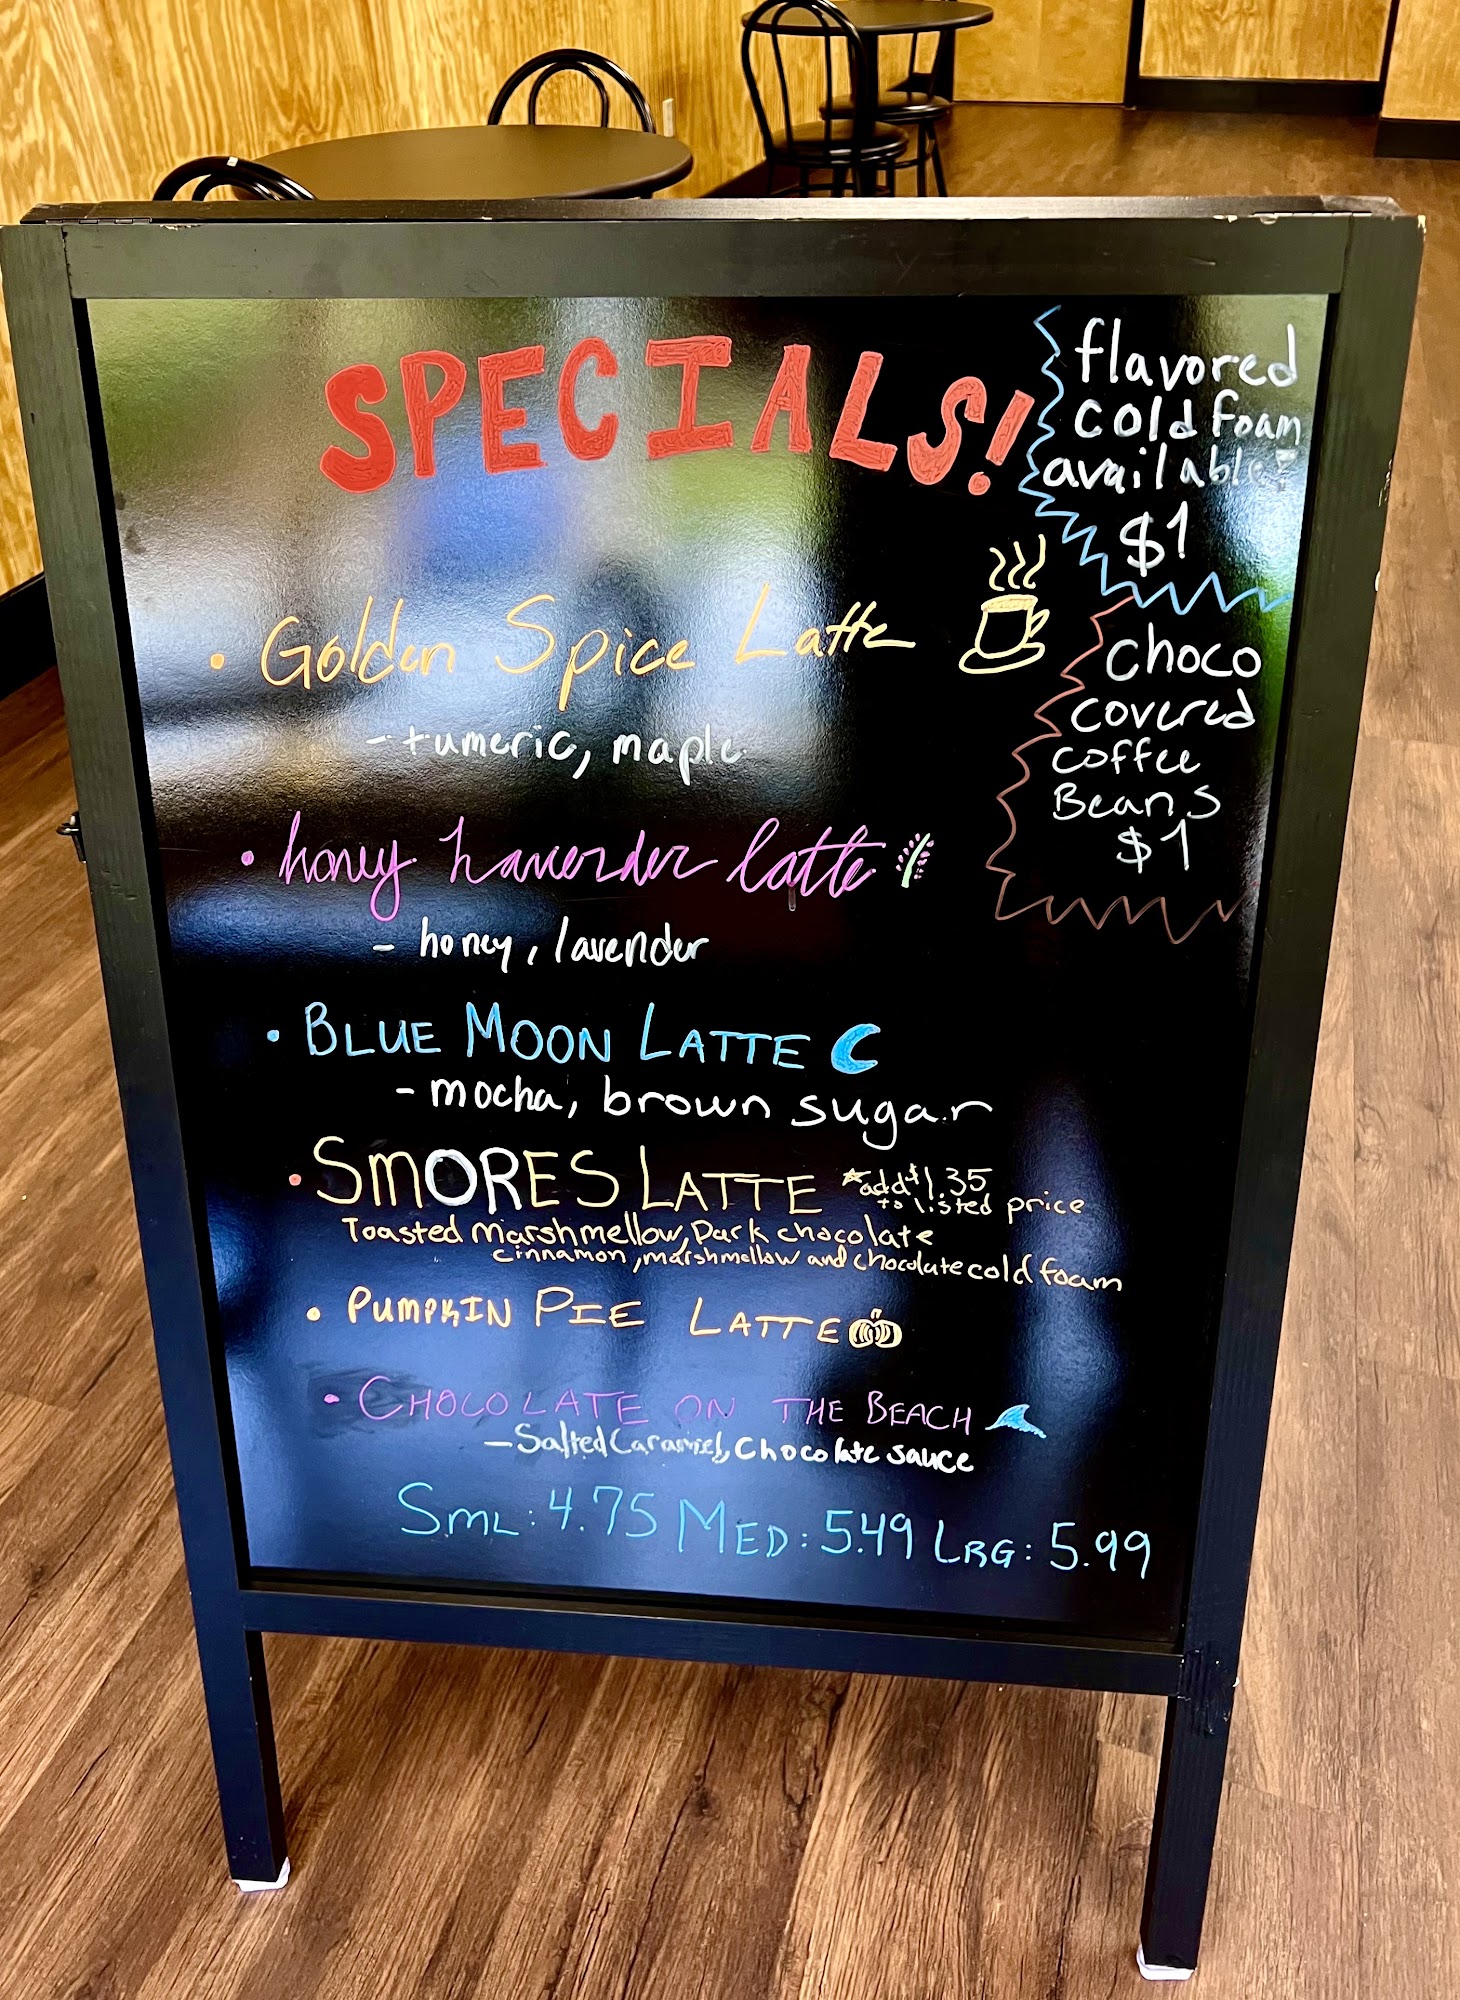 SPECIALS!
flavored
cold foam
available!
$1
• Golden Spice Latte
- tumeric, maple
choco
covered
coffee
Beans
$1
• honey Lavender latte
- honey, lavender
• BLUE MOON LATTE
- mocha, brown sugar
• SmORES LATTE *add $1.35
to listed price
Toasted Marshmellow, Dark chocolate
cinnamon, marshmellow and chocolate cold foam
• PUMPKIN PIE LATTE
• CHOCOLATE ON THE BEACH
- Salted Caramel, Chocolate sauce
SML: 4.75 MED: 5.49 LRG: 5.99